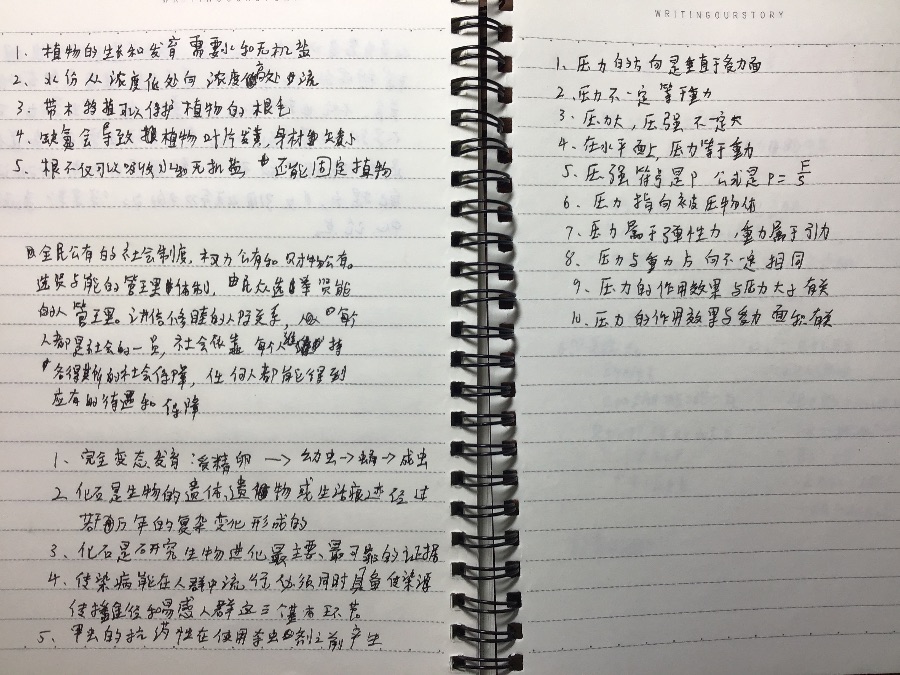 WRITINGOURSTORY
1、植物的生长和发育需要水和无机盐
2、水份从浓度低处向浓度高处流
3、带木移植可以保护植物的根毛
4、缺氮会导致植物叶片发黄,身材矮小
5、根不仅可以吸收水和无机盐 还能固定植物
全民公有的社会制度,权力公有和财物公有。
选贤与能的管理体制,由民众选举贤能
的人管理。讲信修睦的人际关系,每个
人都是社会的一员,社会依靠每个人维持
各得其所的社会保障,任何人都能得到
应有的待遇和保障
1、完全变态发育:受精卵→幼虫→蛹→成虫
2、化石是生物的遗体、遗物或生活痕迹经过
若干万年的复杂变化形成的
3、化石是研究生物进化最主要、最可靠的证据
4、传染病能在人群中流行必须同时具备传染源
传播途径和易感人群这三个基本环节
5、甲虫的抗药性在使用杀虫剂之前产生
WRITINGOURSTORY
1、压力的方向是垂直于受力面
2、压力不一定等于重力
3、压力大,压强不一定大
4、在水平面上,压力等于重力
5、压强符号是P 公式是P=F/S
6、压力指向被压物体
7、压力属于弹性力,重力属于引力
8、压力与重力方向不一定相同
9、压力的作用效果与压力大小有关
10、压力的作用效果与受力面积有关